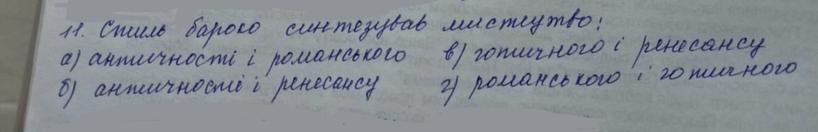 11. Стиль бароко синтезував мистецтво:
а) античності і романського в) готичного і ренесансу
б) античності і ренесансу г) романського і готичного